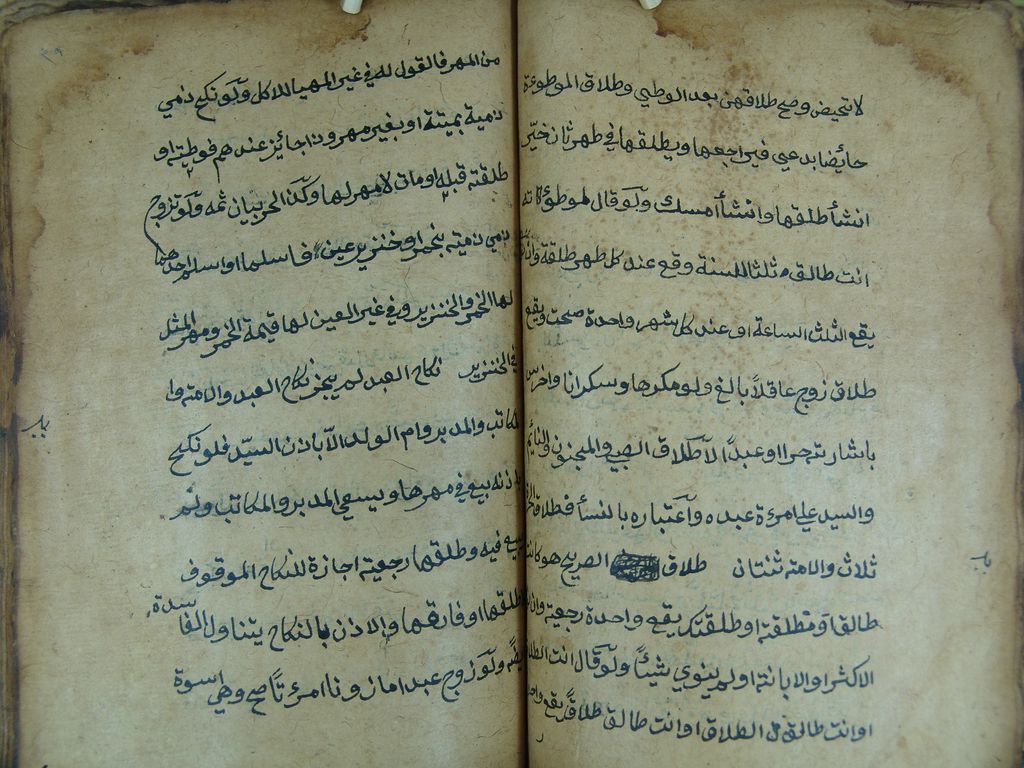 لا تحيض وصح طلاقهن بعد الوطيي وطلاق الموطوءة
حائضا بدعي فيراجعها ويطلقها في طهر ثان خيّر
انشأ طلقها وانشأ امسك ولو قال لموطؤاته
انت طالق ثلثا للسنة وقع عند كل طهر طلقة وان
يقع الثلث الساعة او عند كل شهر واحدة صحت ويقع
طلاق زوج عاقلاً بالغ ولو مكرها وسكرانا واخرس
باشارته حرا او عبداً لا طلاق الصبي والمجنون والنائم
والسيد علي امرءة عبده واعتباره بالنسأ فطلاق
ثلاث والامة ثنتان طلاق الصريح هو كانت
طالق او مطلقة او طلقتك يقع واحدة رجعية وان
الاكثر او الابانة او لم ينوي شيئاً ولو قال انت الطلاق
او انت طالق الطلاق او انت طالق طلاقاً يقع
من المهر فالقول له في غير المهيا للاكل ولو نكح ذمي
ذمية بميتة او بغير مهر وذا جائز عندهم فوطيته او
طلقته قبله او مات لا مهر لها وكذا الحربيان ثمه ولو تزوج
ذمي ذمية بخمر او خنزير عين فاسلما او اسلم احدهما
لها الخمر والخنزير وفي غير العين لها قيمة الخمر ومهر المثل
في الخنزير نكاح العبد لم يجز نكاح العبد والامة وا
لمكاتب والمدبر وام الولد الاّ باذن السيّد فلو نكح
باذنه بيع في مهرها ويسعي المدبر والمكاتب ولم
يبع فيه وطلقها رجعية اجازة للنكاح الموقوف
طلقها او فارقها والاذن بالنكاح يتناول الفاسدة
ولو زوج عبدا ماذونا امرءتاً صح وهي اسوة